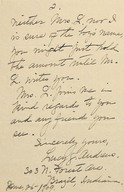 2
Neither Mrs. L. nor I
is sure of the boy's name.
You might just hold
the amount until Mr.
L. writes you.
Mrs. L. joins me in
kind regards to you
and any friends you
see.
Sincerely yours,
Andrews.
303 N. Forest Ave.
Indiana